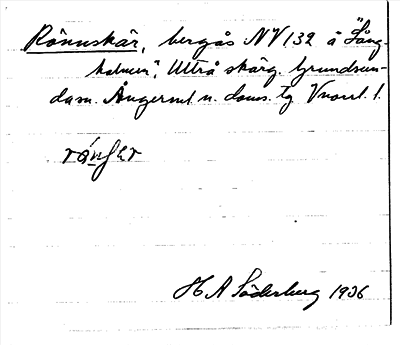 Rönnskär, bergås NV 132 å "Lång-
holmen", Ulvö skärg. Grundsun-
da sn. Ångerml. n. doms. tg Vnorrl. l.
H A Söderberg 1936